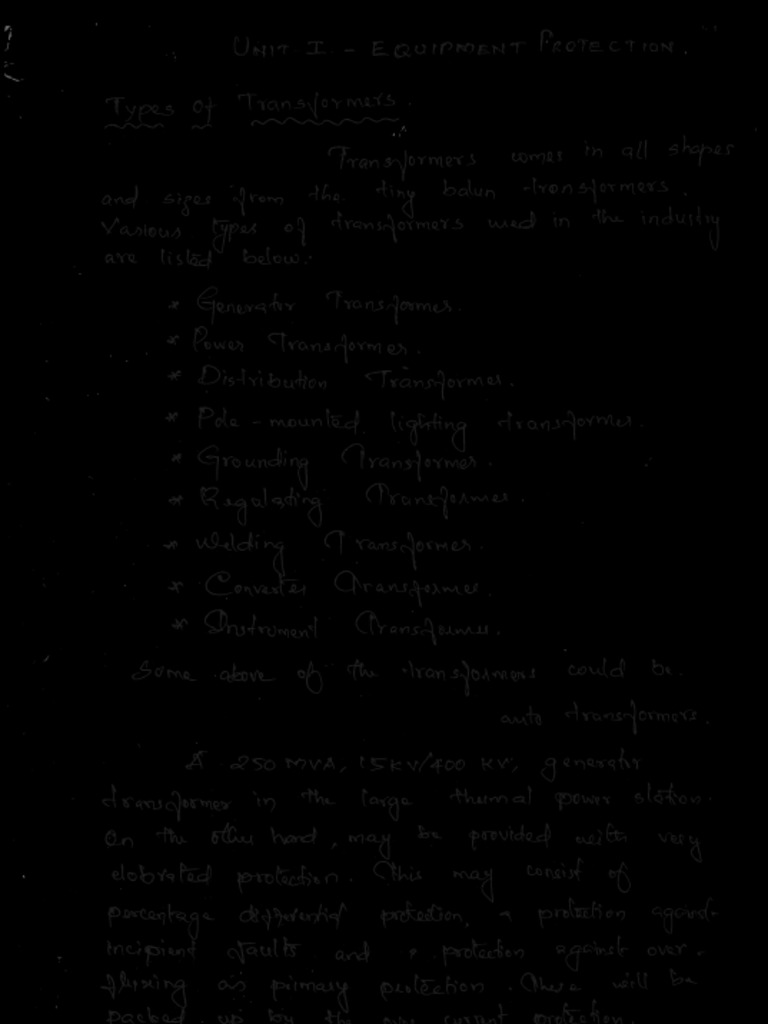 UNIT I - EQUIPMENT PROTECTION.
Types of Transformers.
Transformers comes in all shapes
and sizes from the tiny balun transformers.
Various types of transformers used in the industry
are listed below:
* Generator Transformer.
* Power Transformer.
* Distribution Transformer.
* Pole-mounted lighting transformer.
* Grounding Transformer.
* Regulating Transformer.
* Welding Transformer.
* Converter Transformer.
* Instrument Transformer.
Some above of the transformers could be
auto transformers.
A 250 MVA, 15KV/400 KV, generator
transformer in the large thermal power station.
On the other hand, may be provided with very
elobrated protection. This may consist of
percentage differential protection, a protection against
incipient faults and a protection against over-
fluxing as primary protection. These will be
packed up by the over current protection.